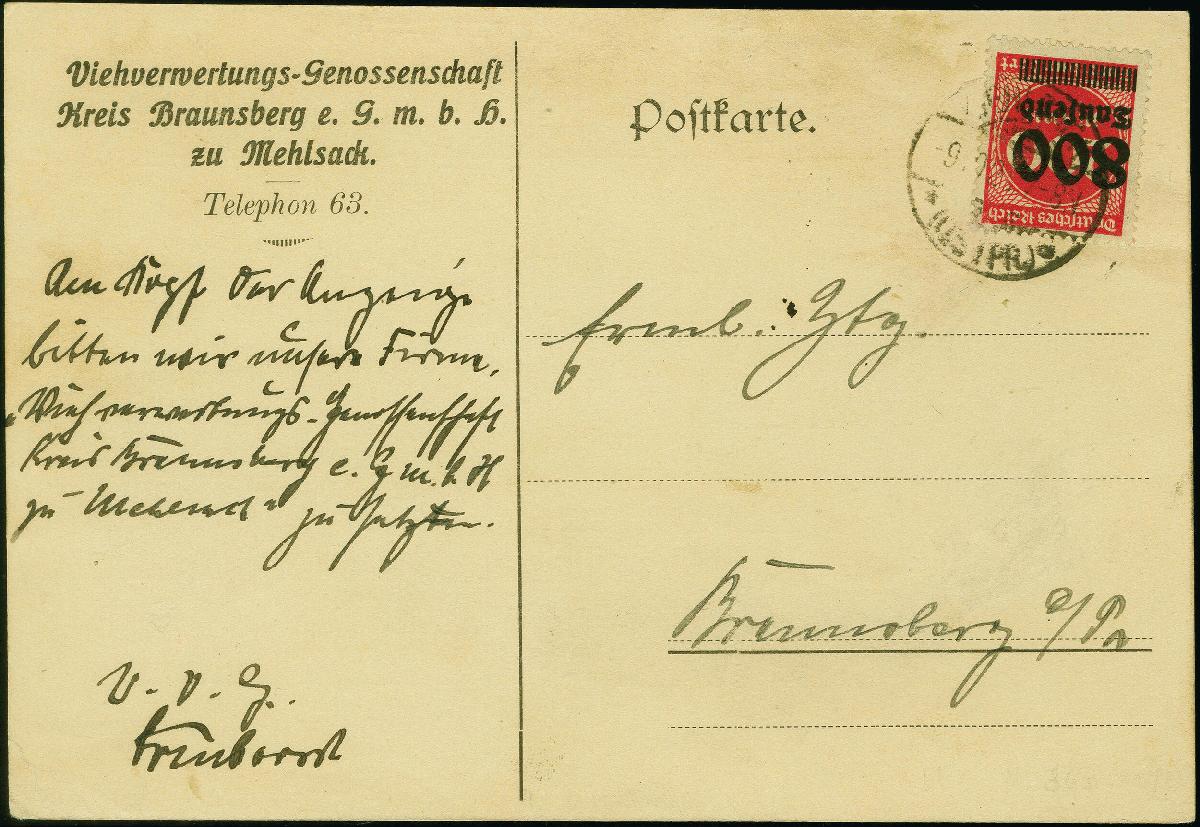 Viehverwertungs-Genossenschaft
Kreis Braunsberg e. G. m. b. H.
zu Mehlsack.
Telephon 63.
Am Kopf der Anzeige
bitten wir unsere Firma,
„Viehverwertungs-Genossenschaft
Kreis Braunsberg e. G m. b H
zu Mehlsack" zu setzten.
V. V. G.
Postkarte.
Tausend
800
Deutsches Reich
(OSTPR)
Erml. Ztg.
Braunsberg o/Pr